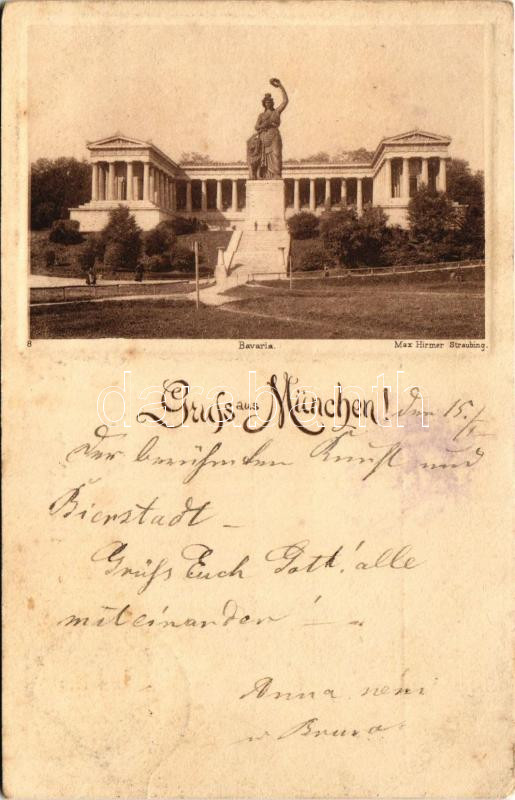 8 Bavaria. Max Hirmer Straubing.
Gruss aus München! den 15./
Der berühmten Kunst und
Bierstadt –
Grüss Euch Gott! alle
miteinander! –
Anna néni
u Bruno.
darabanth